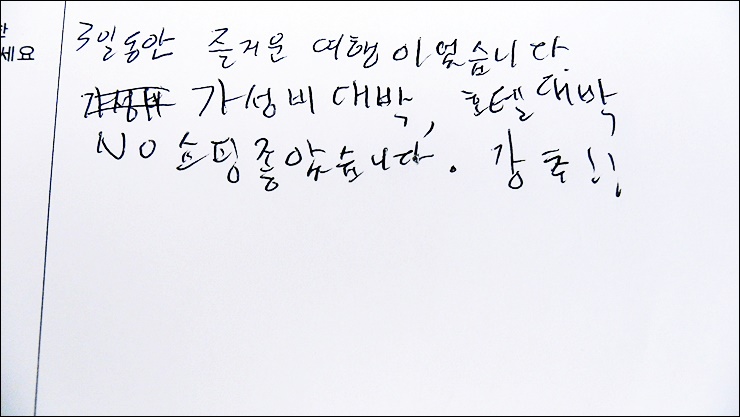 세요
3일동안 즐거운 여행이었습니다
가성비대박, 호텔대박
NO 쇼핑좋았습니다. 강추!!